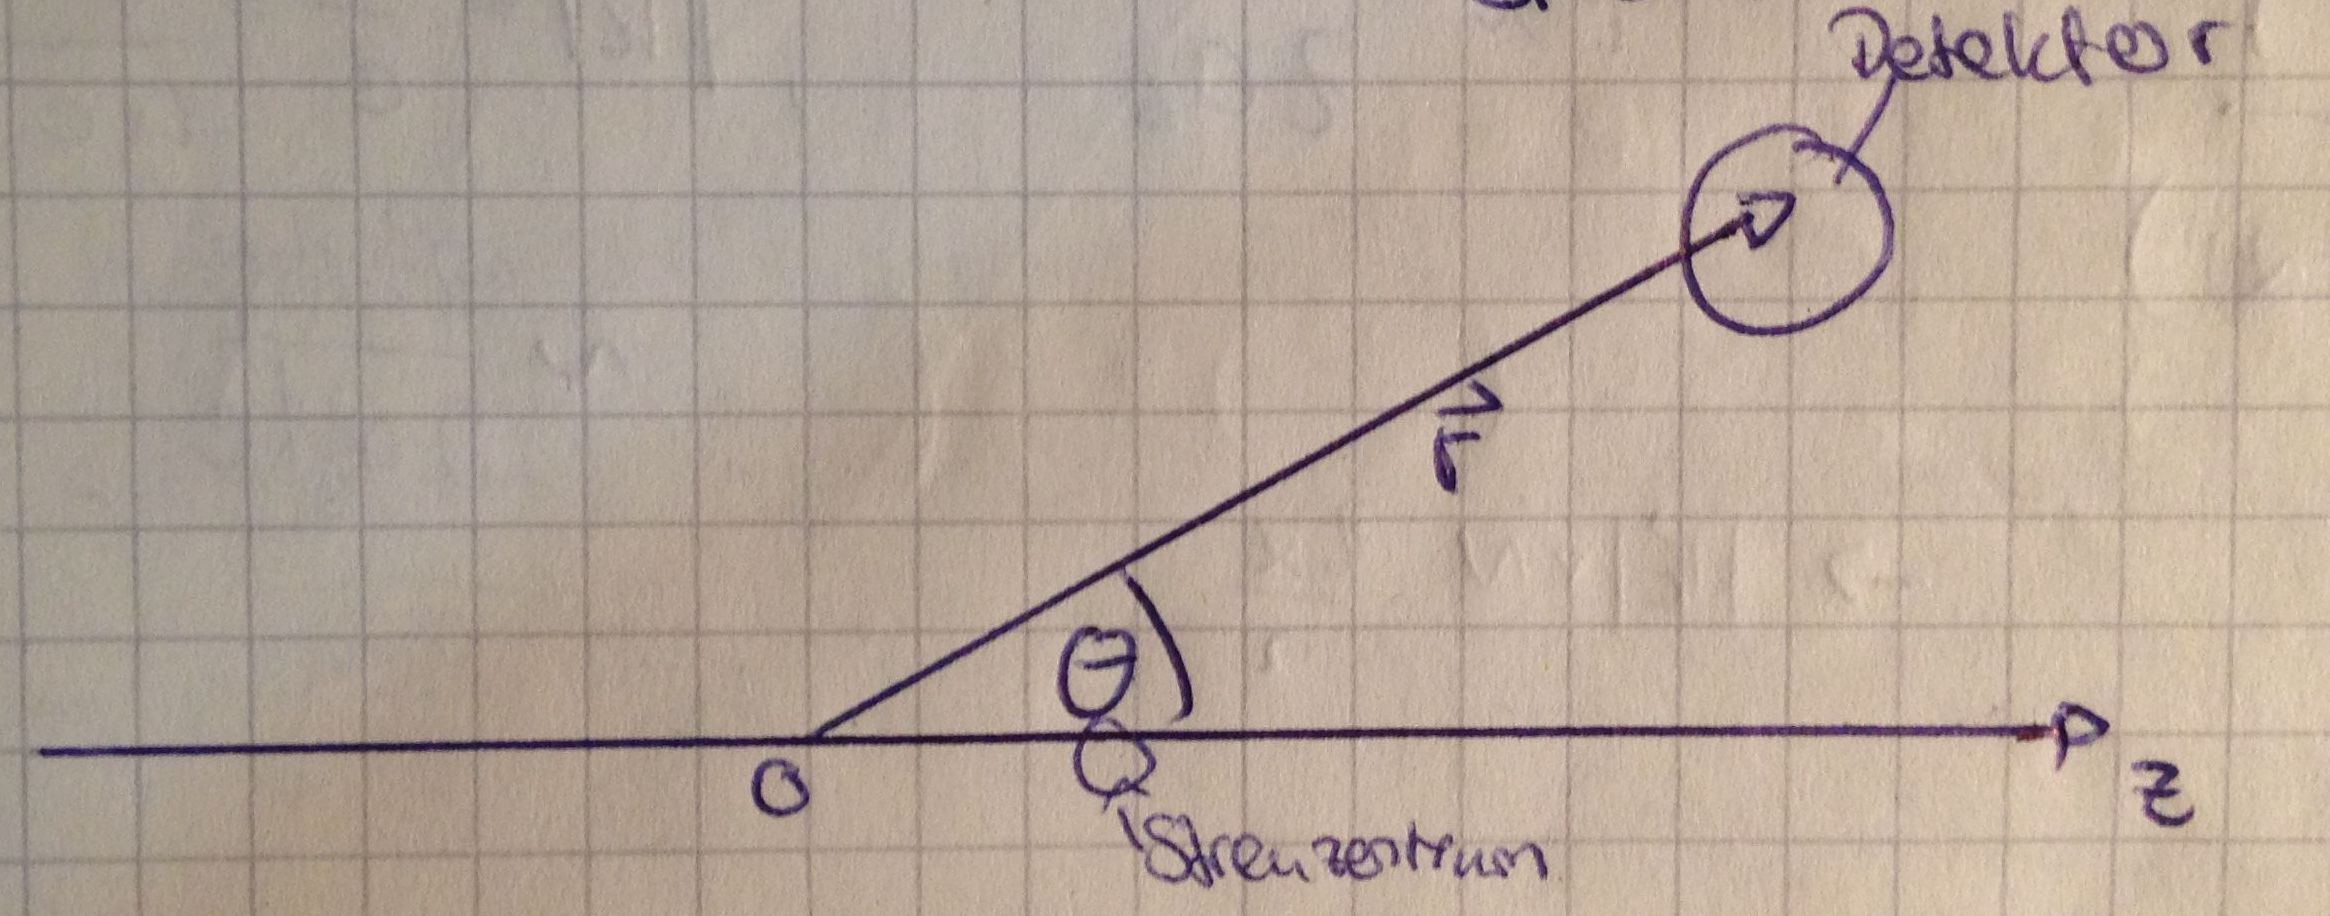 Detektor
r
θ
O
z
Streuzentrum